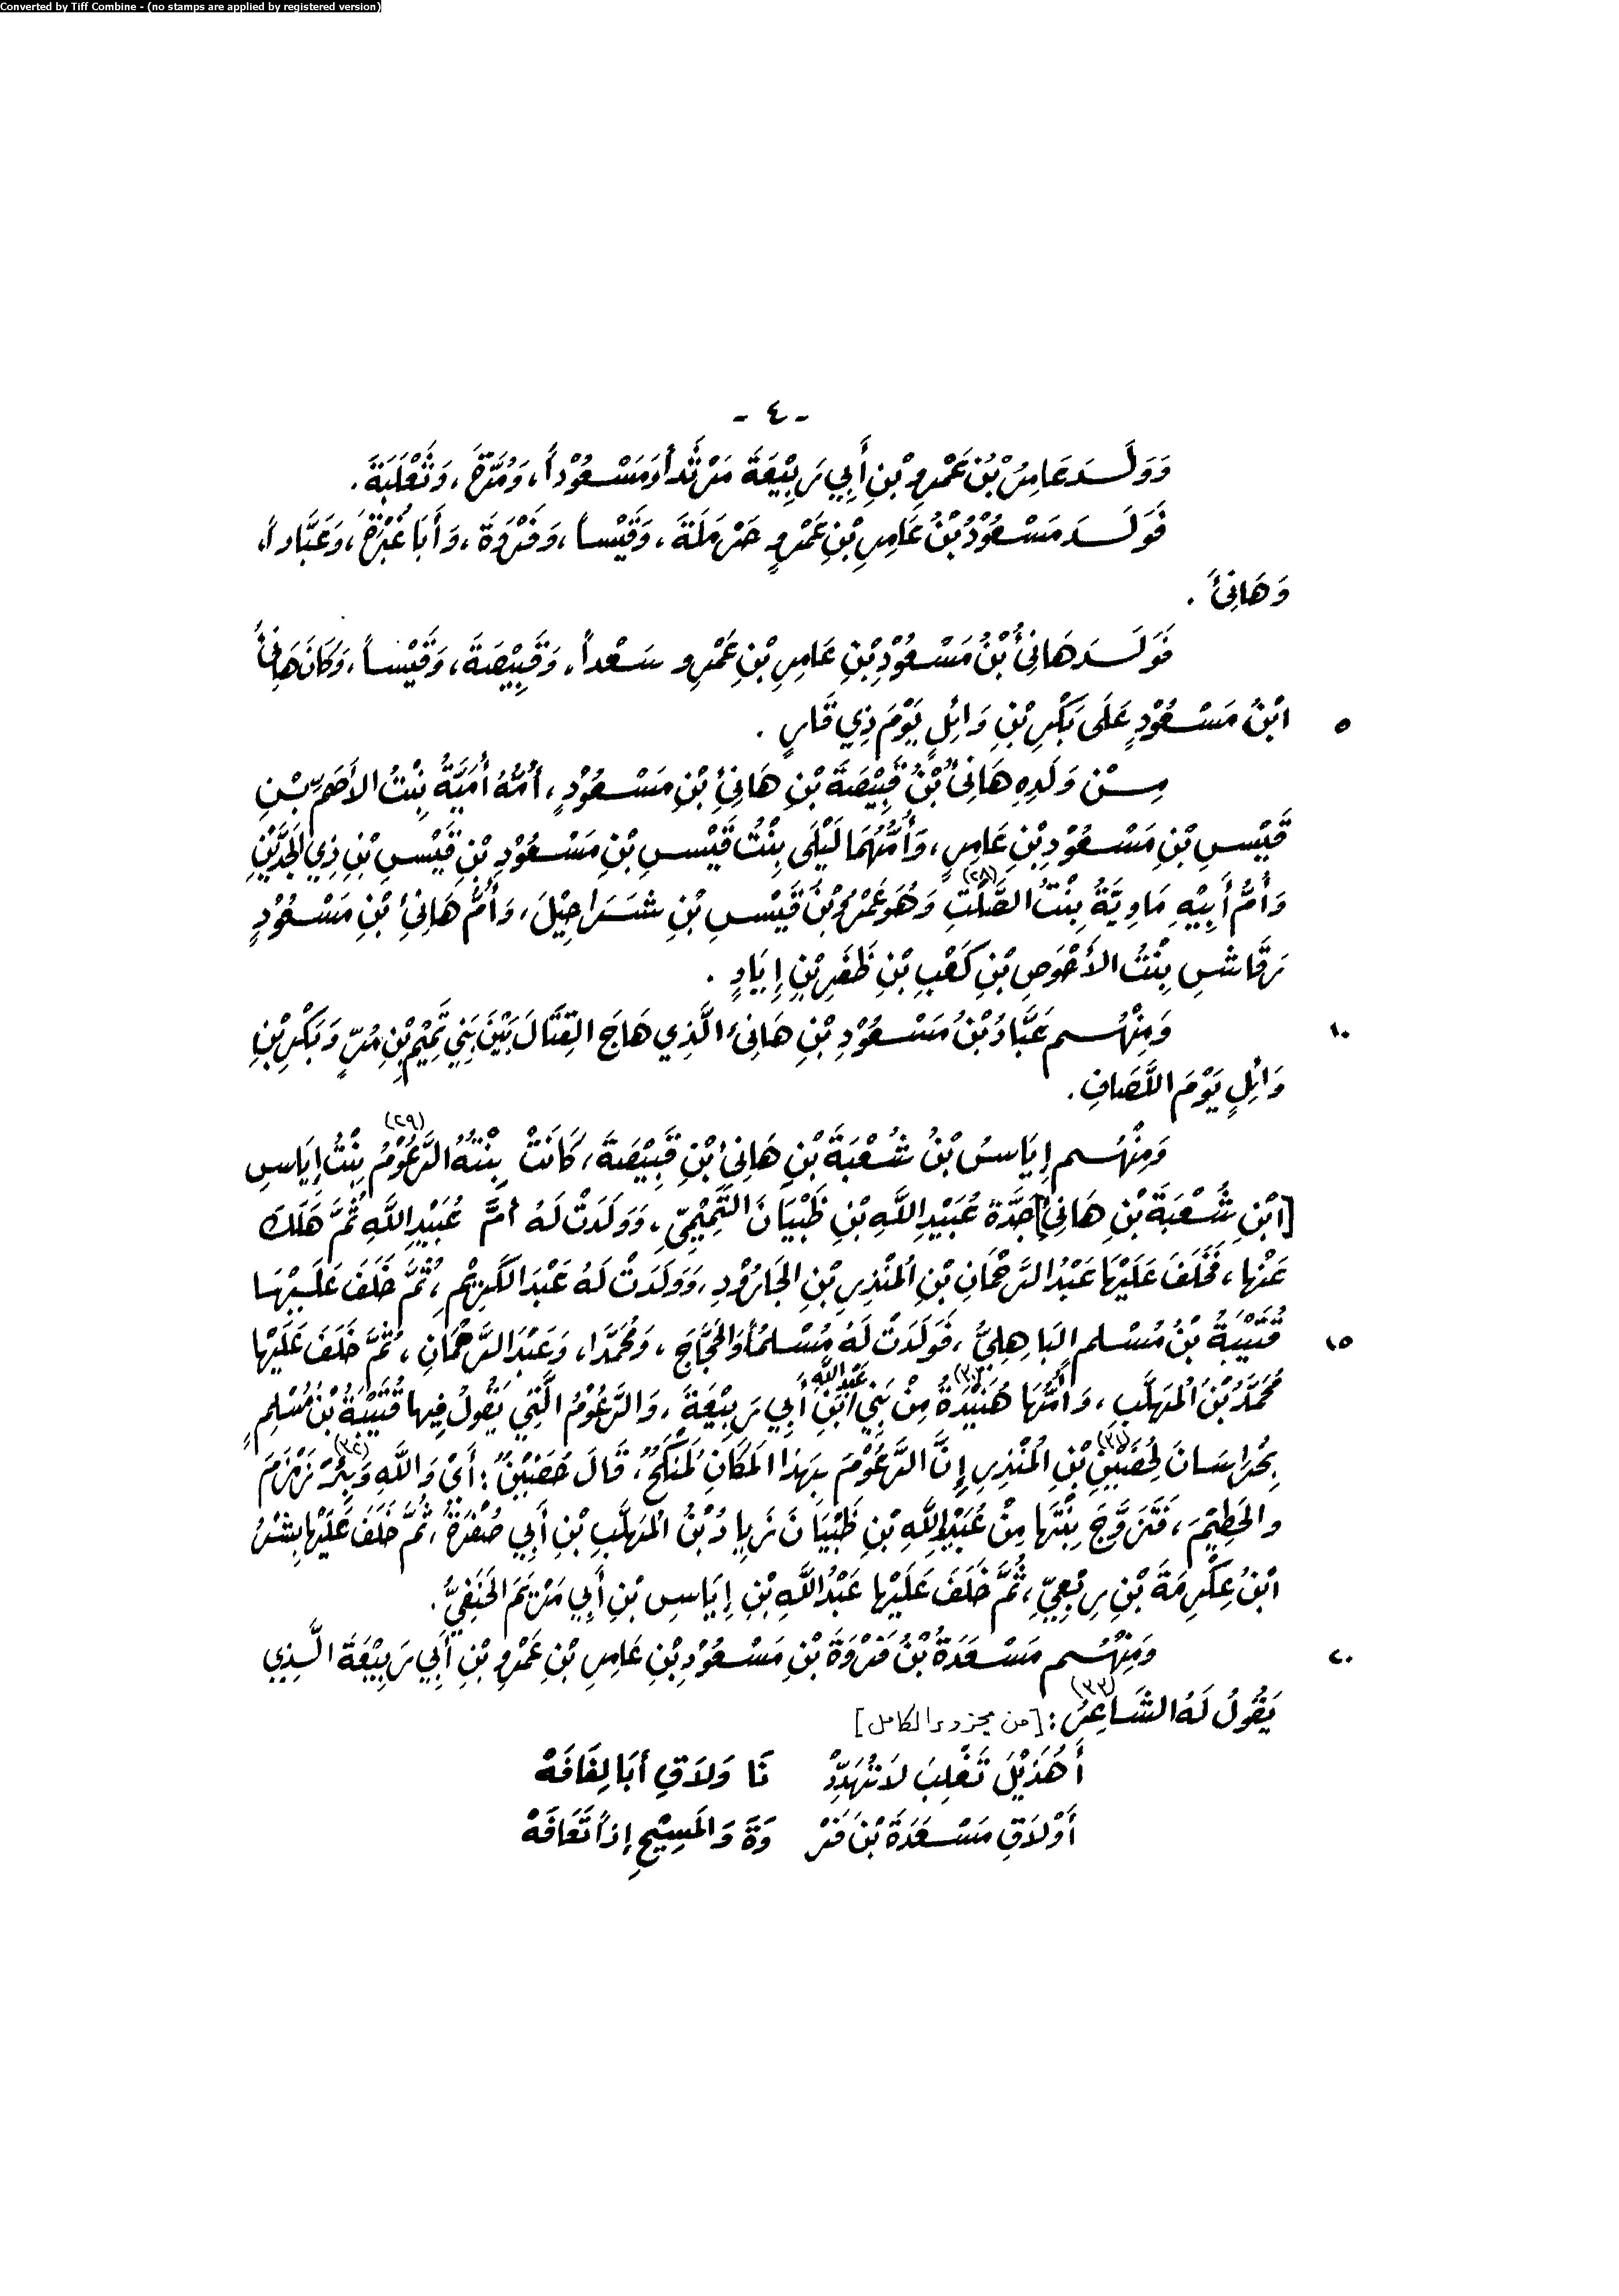 Converted by Tiff Combine - (no stamps are applied by registered version)
- ٤ -
وَوَلَدَ عَامِرُ بْنُ عَمْرِو بْنِ أَبِي رَبِيْعَةَ مَرْثَداً وَمَسْعُوْداً، وَمُرَّةَ، وَثَعْلَبَةَ.
فَوَلَدَ مَسْعُوْدُ بْنُ عَامِرِ بْنِ عَمْرٍو حَرْمَلَةَ، وَقَيْساً، وَفَرْوَةَ، وَأَبَا غُبْرَةَ، وَعَبَّاداً،
وَهَانِئً.
فَوَلَدَ هَانِئُ بْنُ مَسْعُوْدِ بْنِ عَامِرِ بْنِ عَمْرٍو سَعْداً، وَقَبِيْصَةَ، وَقَيْساً، وَكَانَ هَانِئُ
٥ ابْنُ مَسْعُوْدٍ عَلَى بَكْرِ بْنِ وَائِلٍ يَوْمَ ذِي قَارٍ.
مِنْ وَلَدِهِ هَانِئُ بْنُ قَبِيْصَةَ بْنِ هَانِئِ بْنِ مَسْعُوْدٍ، أُمُّهُ أُمَيَّةُ بِنْتُ الأَصَمِّ بْنِ
قَيْسِ بْنِ مَسْعُوْدِ بْنِ عَامِرٍ، وَأُمُّهُمَا لَيْلَى بِنْتُ قَيْسِ بْنِ مَسْعُوْدِ بْنِ قَيْسِ بْنِ ذِي الجَدَّيْنِ
وَأُمُّ أَبِيْهِ مَاوِيَّةُ بِنْتُ الصَّلْتِ (٢٨) وَهُوَ عَمْرُو بْنُ قَيْسِ بْنِ شَرَاحِيْلَ، وَأُمُّ هَانِئِ بْنِ مَسْعُوْدٍ
رَقَاشِ بِنْتُ الأَحْوَصِ بْنِ كَعْبِ بْنِ ظَفَرِ بْنِ إِيَادٍ.
١٠ وَمِنْهُم عَبَّادُ بْنُ مَسْعُوْدِ بْنِ هَانِئ الَّذِي هَاجَ القِتَالَ بَيْنَ بَنِي تَمِيْمِ بْنِ مُرٍّ وَبَكْرِ بْنِ
وَائِلٍ يَوْمَ اللَّصَافِ.
وَمِنْهُم إِيَاسُ بْنُ شُعْبَةَ بْنِ هَانِئِ بْنِ قَبِيْصَةَ، كَانَتْ بِنْتُهُ الزَّعُوْمُ (٢٩) بِنْتُ إِيَاسِ
[ابْنِ شُعْبَةَ بْنِ هَانِئ] جَدَّة عُبَيْدِ اللَّهِ بْنِ ظَبْيَانَ التَّمِيْمِيِّ، وَوَلَدَتْ لَهُ أمَّ عُبَيْدِ اللَّهِ ثُمَّ هَلَكَ
عَنْهَا، فَخَلَفَ عَلَيْهَا عَبْدُ الرَّحْمَانِ بْنِ المُنْذِرِ بْنِ الجَارُوْدِ، وَوَلَدَتْ لَهُ عَبْدَ الكَرِيْمِ، ثُمَّ خَلَفَ عَلَيْهَا
١٥ قُتَيْبَةُ بْنُ مُسْلِم البَاهِلِيُّ، فَوَلَدَتْ لَهُ مُسْلِماً وَالحَجَّاجَ، وَمُحَمَّدَا، وَعَبْدَ الرَّحْمَانِ، ثُمَّ خَلَفَ عَلَيْهَا
مُحَمَّدُ بْنُ المُهَلَّبِ، وَأُمُّهَا هُنَيْدَةُ (٣٠) مِنْ بَنِي عَبْدِ اللَّهِ ابْنِ أَبِي رَبِيْعَةَ، وَالزَّعُوْمُ الَّتِي يَقُولُ فِيها قُتَيْبَةُ بْنُ مُسْلِمٍ
بِخُرَاسَانَ لِحُضَيْنِ (٣١) بْنِ المُنْذِرِ إِنَّ الزَّعُوْمَ بِهَذَا المَكَانِ لَمَنْكَحٌ، قَالَ حُضَيْنٌ: أَيْ وَاللَّهِ وَبِئْرُ (٣٢) زَمْزَمَ
وَالحَطِيْمَ، فَتَزَوَّجَ بِنْتَهَا مِنْ عُبَيْدِ اللَّهِ بْنِ ظَبْيَانَ زِيادُ بْنُ المُهَلَّبِ بْنِ أَبِي صُفْرَةَ، ثُمَّ خَلَفَ عَلَيْهَا بِشْرُ
ابْنُ عِكْرِمَةَ بْنِ رِبْعِيِّ، ثُمَّ خَلَفَ عَلَيْها عَبْدُ اللَّهِ بْنِ إِيَاسِ بْنِ أَبِي مَرْيَمَ الحَنَفِيُّ.
٢٠ وَمِنْهُم مَسْعَدَةُ بْنُ فَرْوَةَ بْنِ مَسْعُوْدِ بْنِ عَامِرِ بْنِ عَمْرِو بْنِ أَبِي رَبِيْعَةَ الَّذِي
يَقُولُ لَهُ الشَّاعِرُ (٣٣): [من مجزوء الكامل]
أَهُذَيْلَ تَغْلِبَ لاَ تُهَدِّدْ نَا وَلاَقِ أبَا لِفَافَهْ
أَوْ لاَقِ مَسْعَدَةَ بْنَ فَرْ وَةَ وَالمَسِيْحِ إِذاً تَعَافَهْ